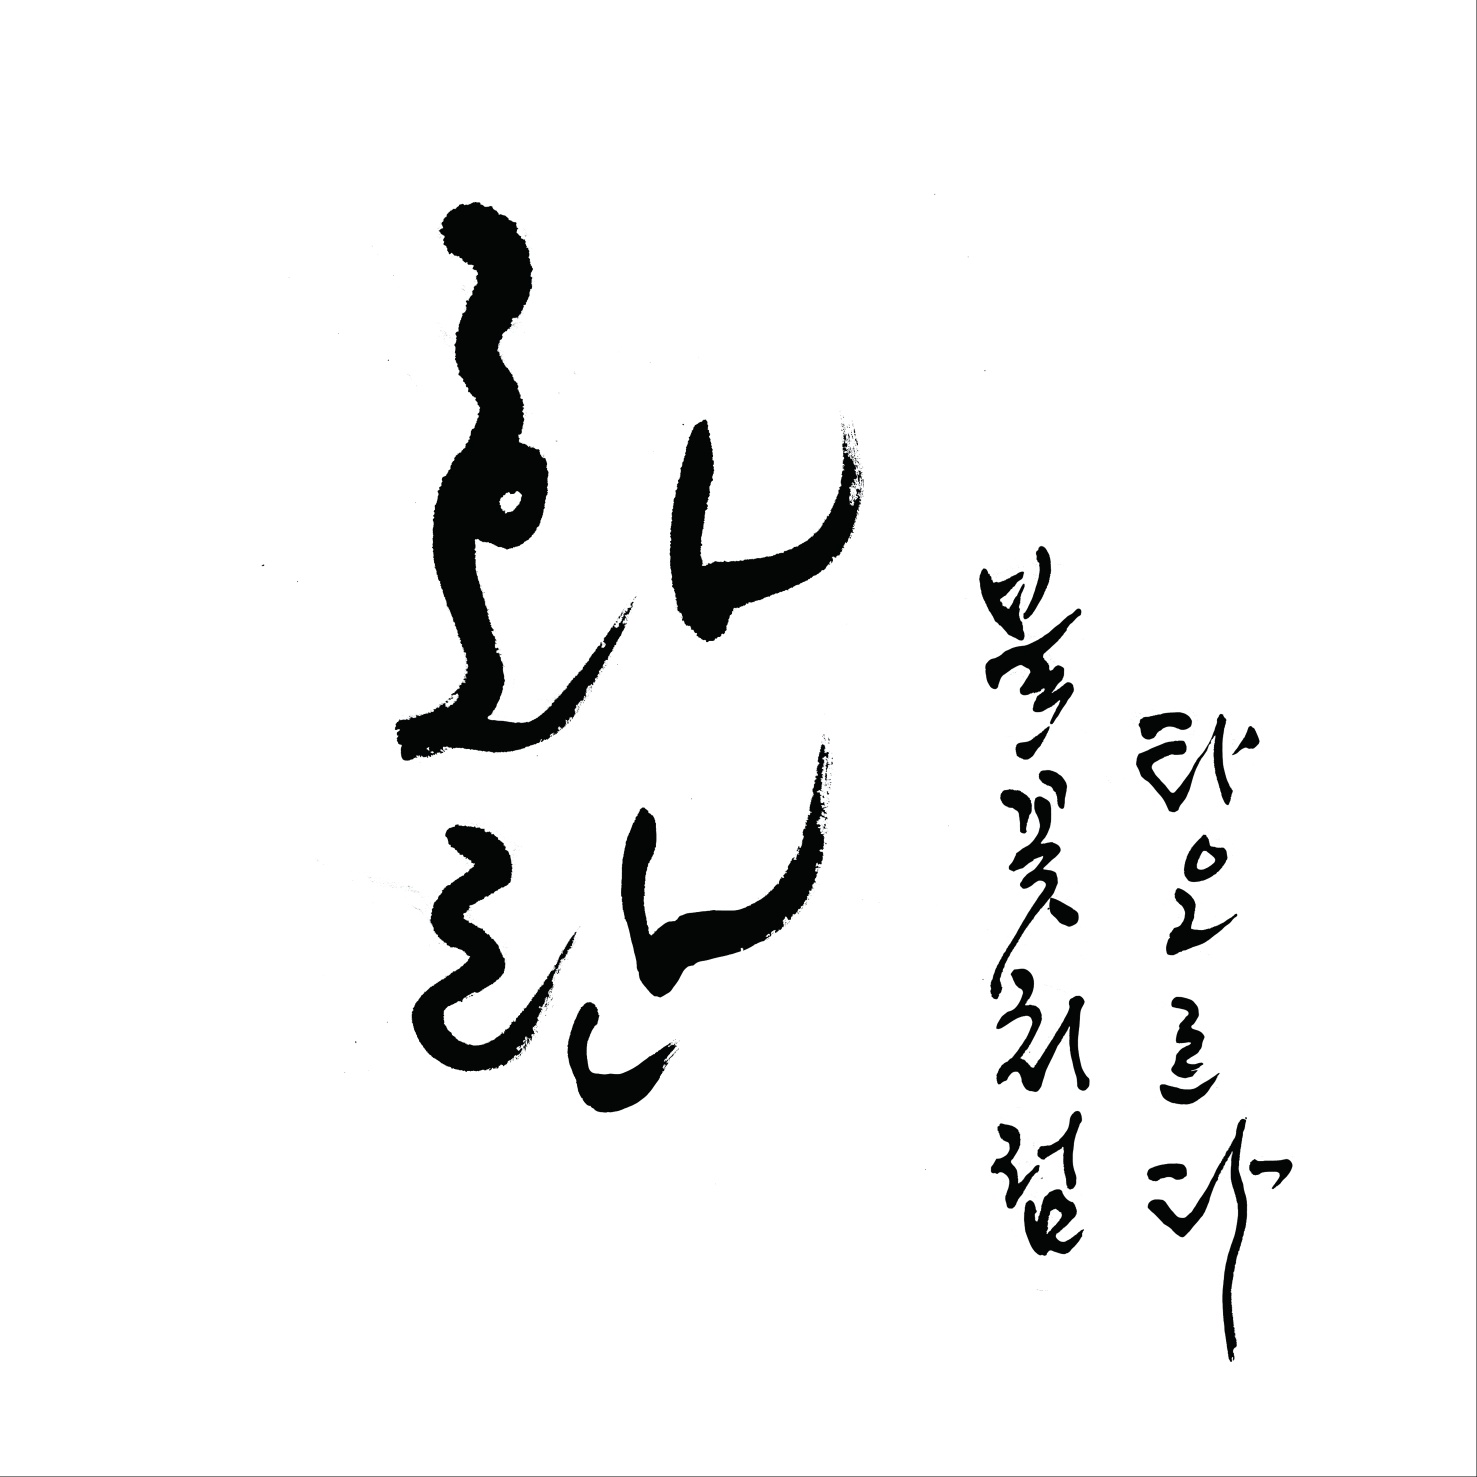 화란
불꽃처럼
타오르다